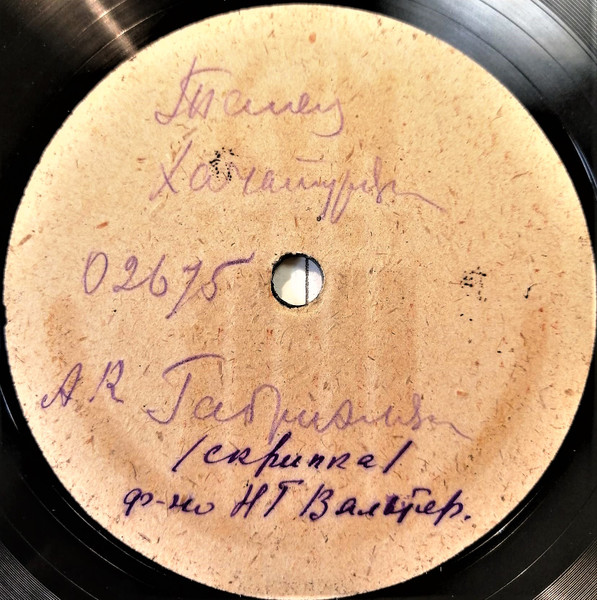 Танец
Хачатурян
02675
АК Габриэлян
/скрипка/
ф-но НГ Вальтер.